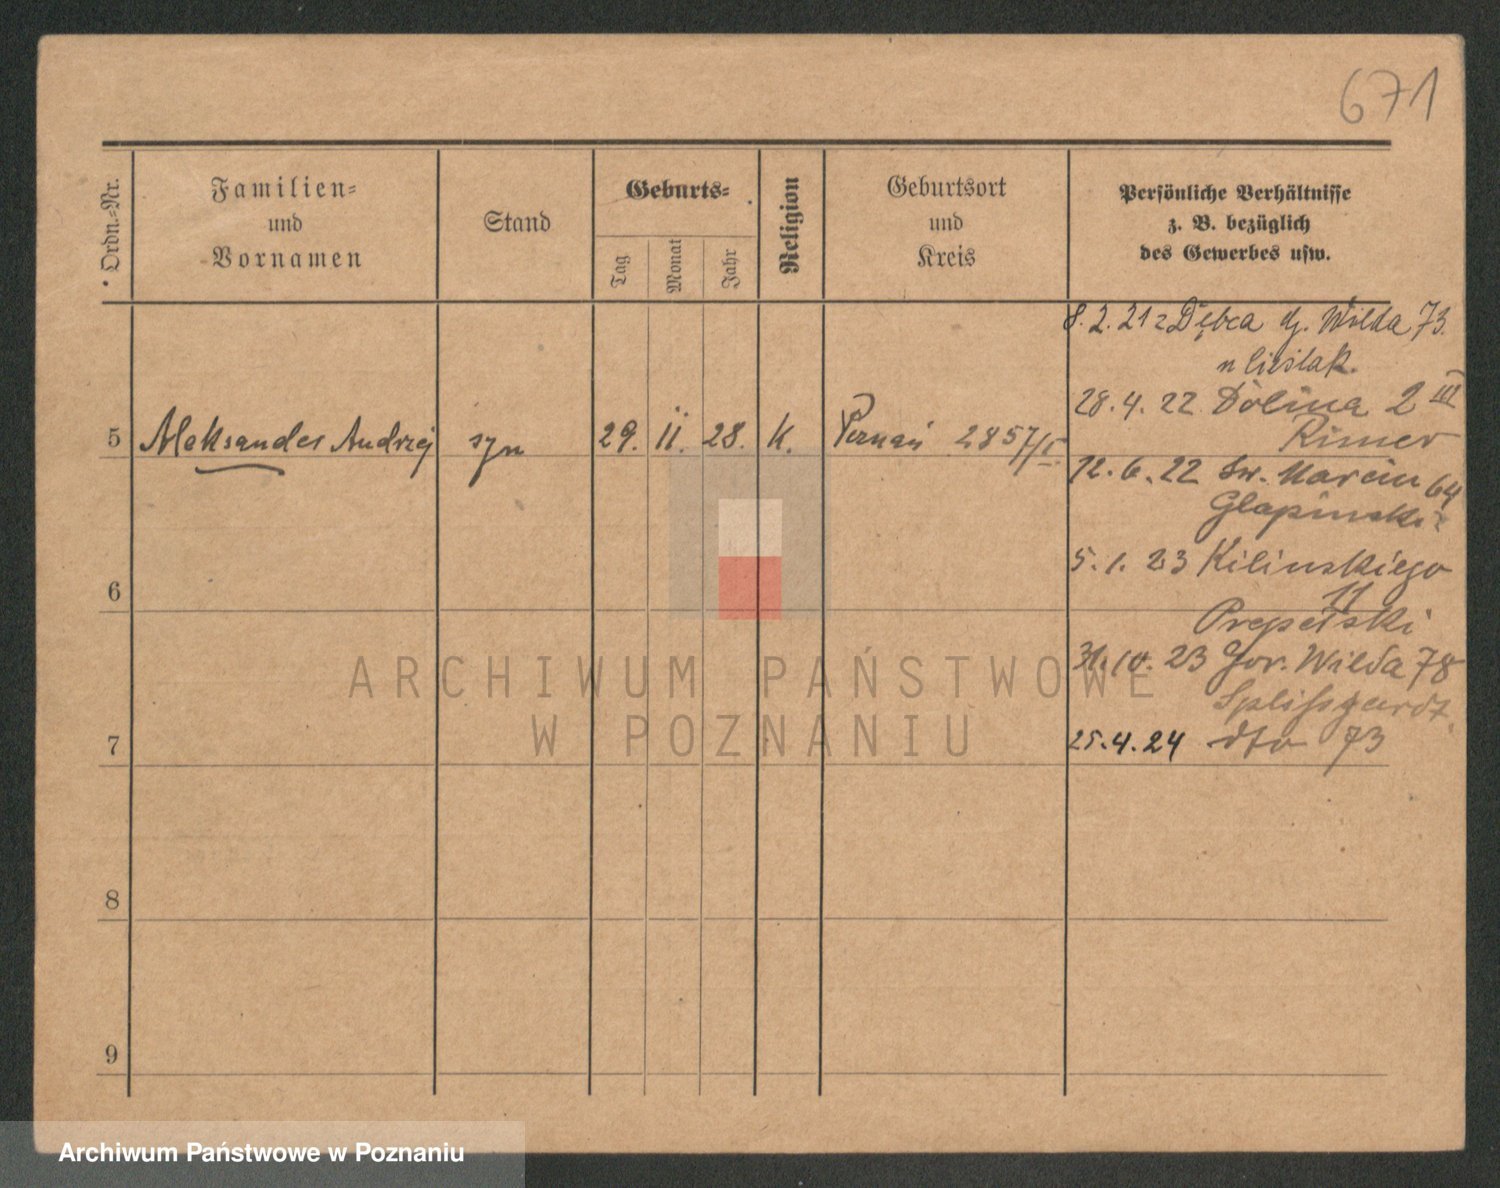 671
Ordn.-Nr.
Familien-
und
Vornamen
Stand
Geburts-
Tag
Monat
Jahr
Religion
Geburtsort
und
Kreis
Persönliche Verhältnisse
z. B. bezüglich
des Gewerbes usw.
8.2.21 z Dębca dj. Wilda 73.
n Cieślak.
28.4.22 Dolina 2 III
Rimer
5 Aleksander Andrzej syn 29. 11. 28. K. Poznań 2857/I
12.6.22 Św. Marcin 64
Glapinski
5.1.23 Kilinskiego
11
6
Prepetski
31.10.23 Gór. Wilda 78
Splissgardt.
7
25.4.24 dto 73
8
9
ARCHIWUM PAŃSTWOWE
W POZNANIU
Archiwum Państwowe w Poznaniu